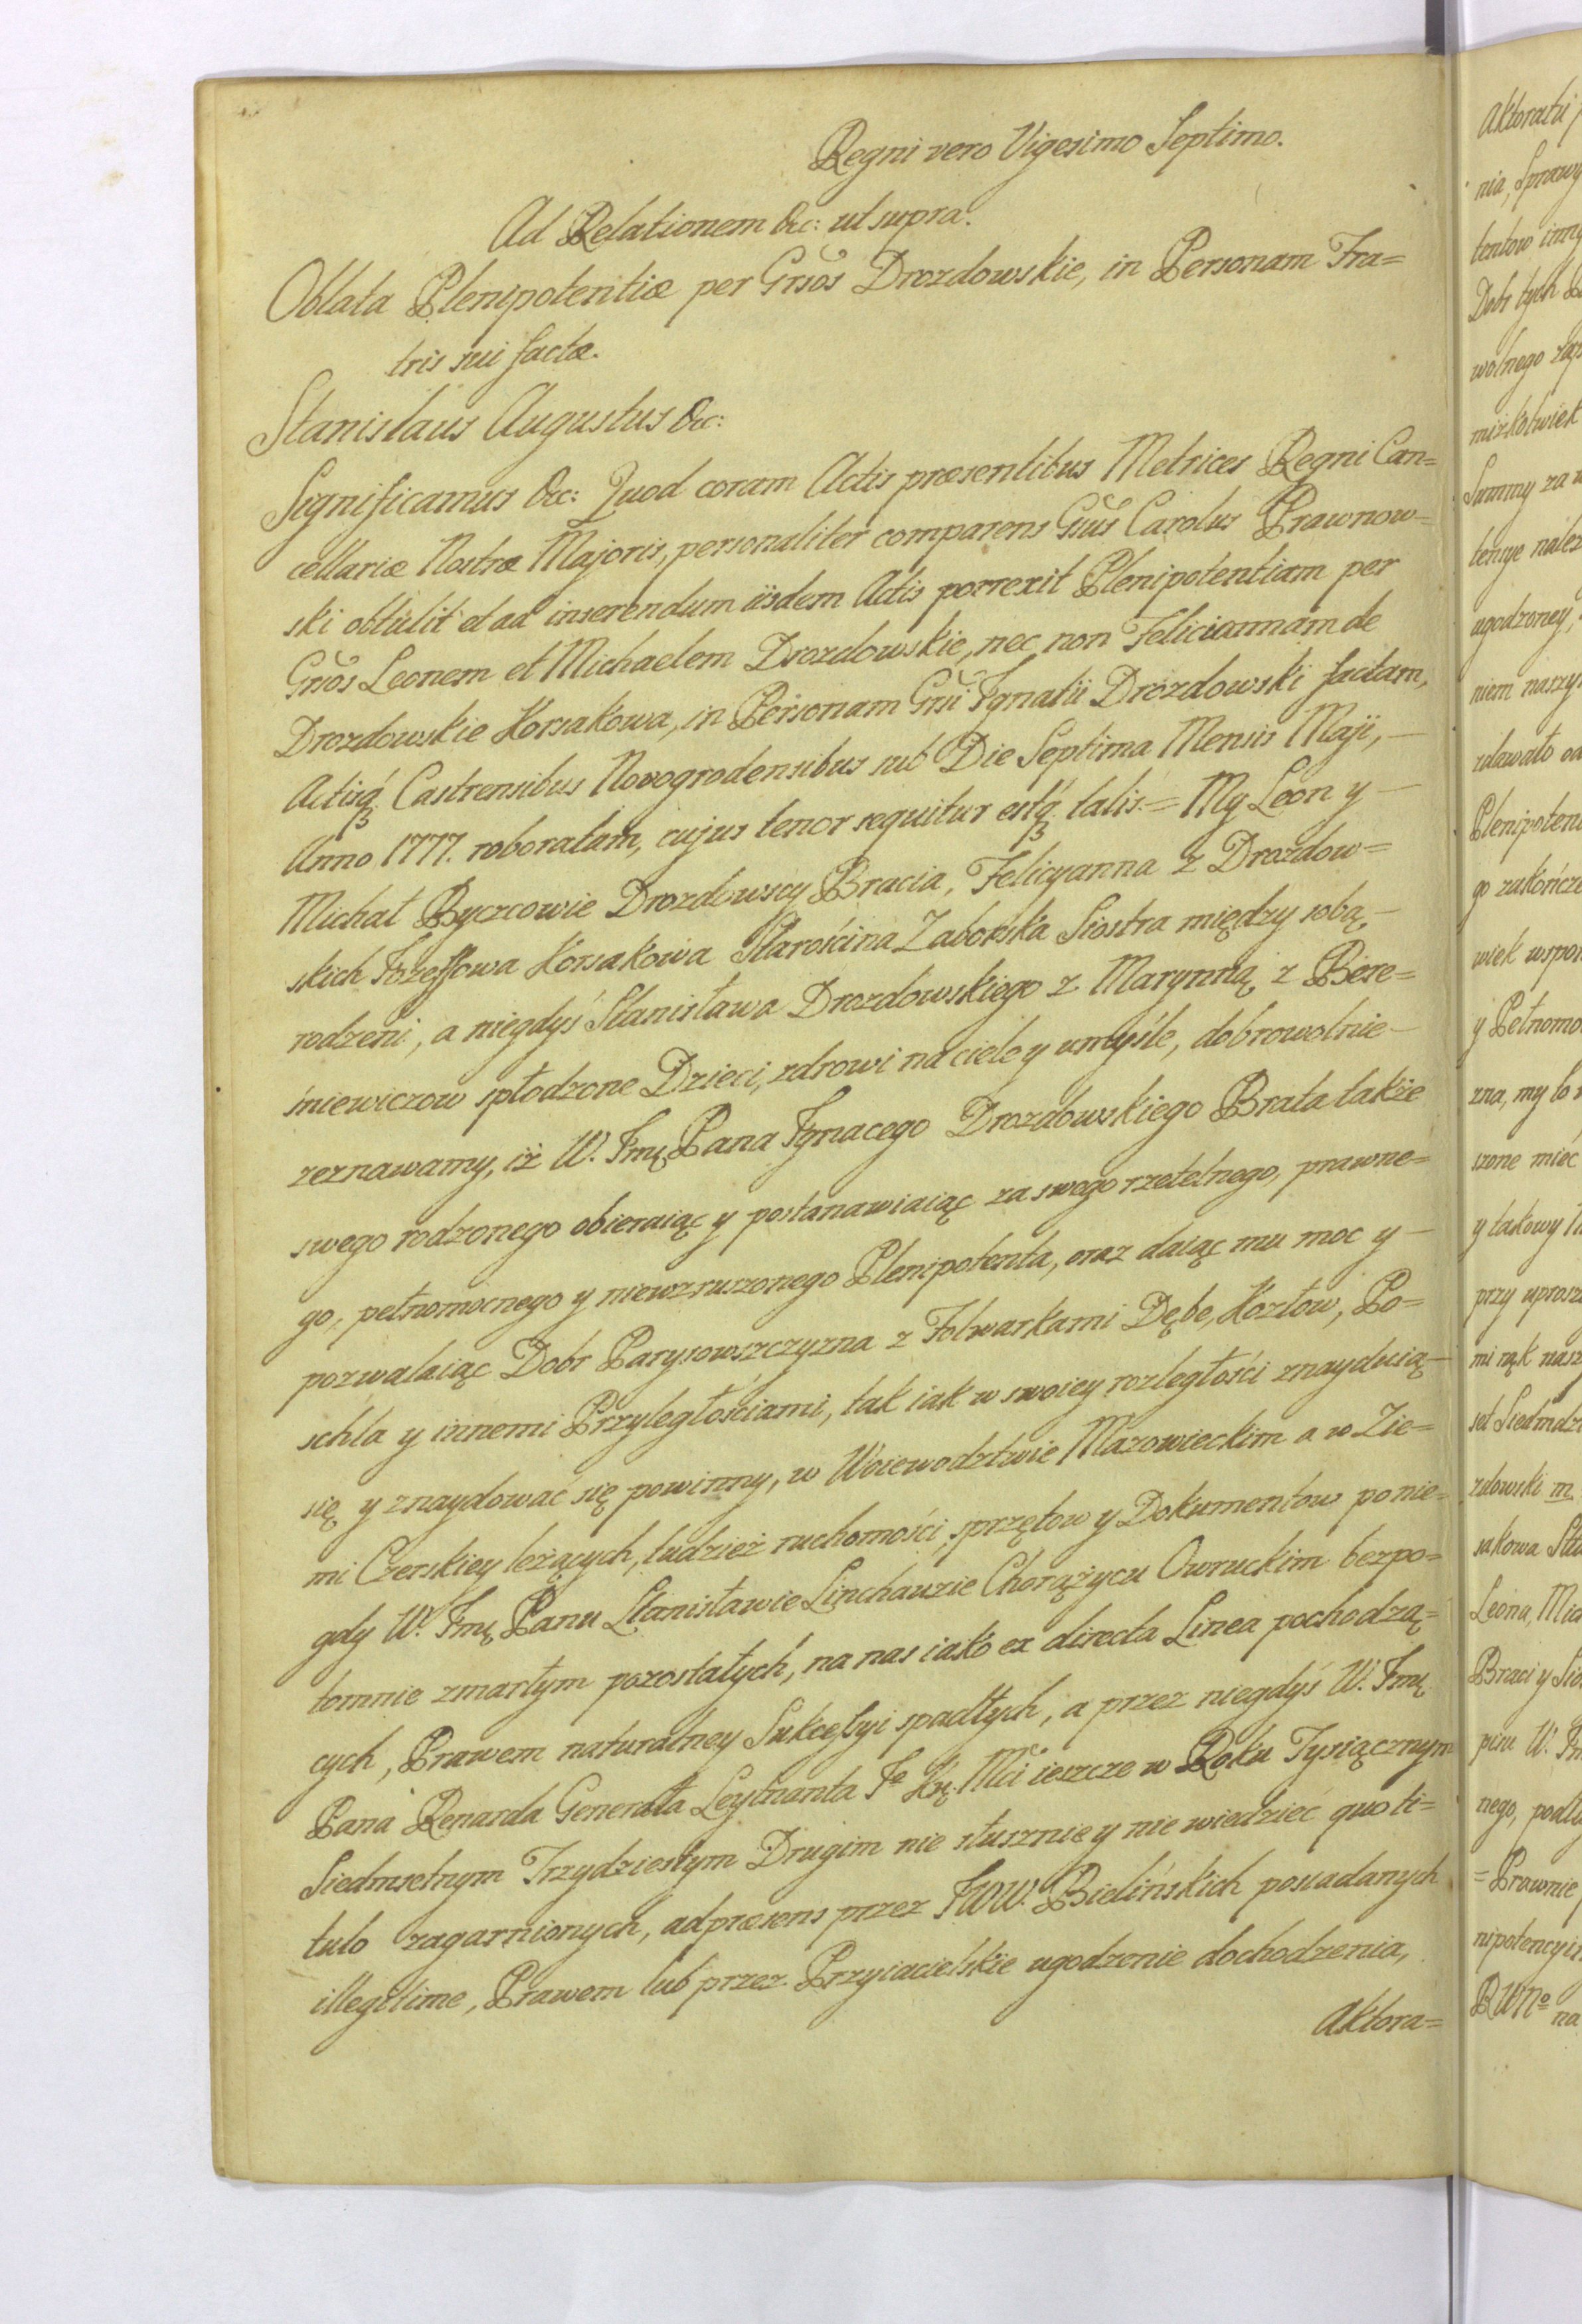 Regni vero Vigesimo Septimo.
Ad Relationem &c: ut supra.
Oblata Plenipotentiæ per Grsos Drozdowskie, in Personam Fra=
tris sui factæ.
Stanislaus Augustus &c:
Significamus &c: Quod coram Actis præsentibus Metrices Regni Can=
cellariæ Nostræ Majoris, personaliter comparens Gsus Carolus Prawnow=
ski obtulit et ad inserendum iisdem Actis porrexit Plenipotentiam per
Grsos Leonem et Michaelem Drozdowskie, nec non Feliciannam de
Drozdowskie Korsakowa, in Personam Grsi Ignatii Drozdowski factam,
Actisq Castrensibus Novogrodensibus sub Die Septima Mensis Maji, —
Anno 1777. roboratam, cujus tenor sequitur estq talis: = My Leon y —
Michał Byczcowie Drozdowscy Bracia, Felicyanna z Drozdow=
skich Jozeffowa Korsakowa Starościna Zaborska Siostra między sobą —
rodzeni, a niegdyś Stanisława Drozdowskiego z Marynną z Bere=
śniewiczow spłodzone Dzieci, zdrowi na ciele y umyśle, dobrowolnie —
zeznawamy, iż W. Jmę Pana Jgnacego Drozdowskiego Brata także
swego rodzonego obieraiąc y postanawiaiąc za swego rzetelnego, prawne=
go, pełnomocnego y niewzruszonego Plenipotenta, oraz daiąc mu moc y —
pozwalaiąc Dobr Parysowszczyzna z Folwarkami Dębe, Kozłow, Po=
schla y innemi Przyległościami, tak iak w swoiey rozległości znayduią —
się y znaydować się powinny, w Woiewodztwie Mazowieckim a w Zie=
mi Czerskiey leżących, tudzież ruchomości, sprzętow y Dokumentow po nie=
gdy W. Jmę Panu Stanisławie Linchauzie Chorążycu Owruckim bezpo=
tomnie zmarłym pozostałych, na nas iako ex directa Linea pochodzą=
cych, Prawem naturalney Sukcessyi spadłych, a przez niegdyś W. Jmę
Pana Renarda Generała Leytnanta Jo Kę. Mci ieszcze w Roku Tysiącznym
Siedmsetnym Trzydziestym Drugim nie słusznie y nie wiedzieć quo ti=
tulo zagarnionych, ad præsens przez JWW. Bielińskich posiadanych
illegitime, Prawem lub przez Przyiacielskie ugodzenie dochodzenia,
Aktora=